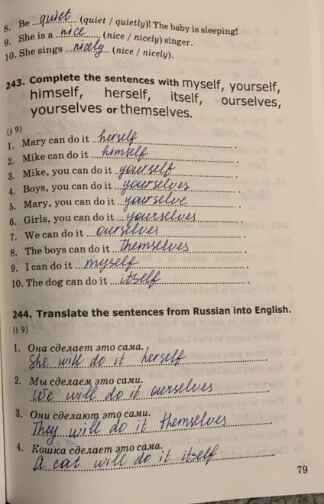 8. Be quiet (quiet / quietly)! The baby is sleeping!
9. She is a nice (nice / nicely) singer.
10. She sings nicely (nice / nicely).
243. Complete the sentences with myself, yourself,
himself, herself, itself, ourselves,
yourselves or themselves.
(§ 9)
1. Mary can do it herself.
2. Mike can do it himself.
3. Mike, you can do it yourself.
4. Boys, you can do it yourselves.
5. Mary, you can do it yourselve.
6. Girls, you can do it yourselves.
7. We can do it ourselves.
8. The boys can do it themselves.
9. I can do it myself.
10. The dog can do it itself.
244. Translate the sentences from Russian into English.
(§ 9)
1. Она сделает это сама.
She will do it herself
2. Мы сделаем это сами.
We will do it ourselves
3. Они сделают это сами.
They will do it themselves
4. Кошка сделает это сама.
A cat will do it itself
79